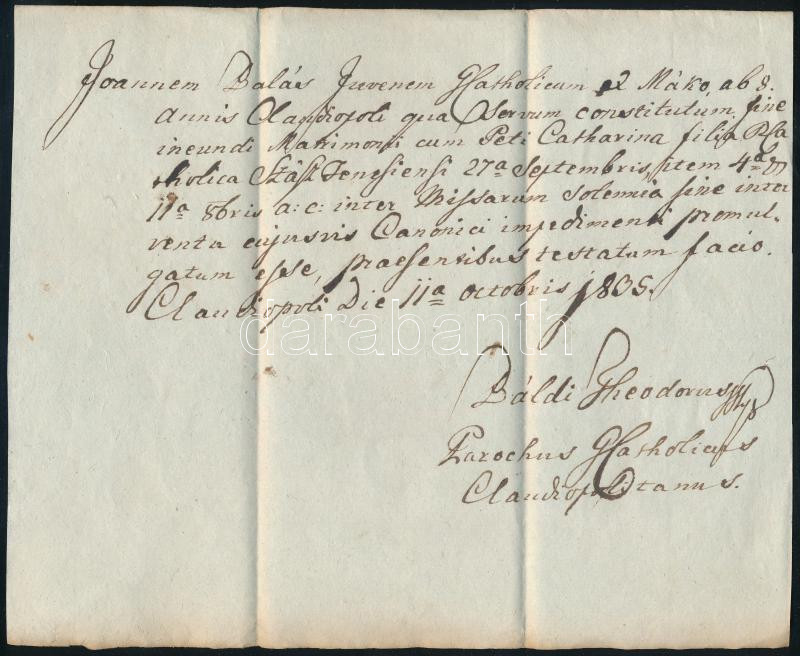 Joannem Balás Juvenem GCatholicum ex Máko, ab 8.
annis Claudiopoli qua servum constitutum, fine
ineundi Matrimonii cum Peti Catharina filia RCa
tholica Szász Fenesiensi 27a Septembris, item 4a &
11a 8bris a: c: inter Missarum solemnia sine inter
ventu cujusvis Canonici impedimenti promul-
gatum esse, praesentibus testatum facio.
Claudiopoli Die 11a octobris 1835.
darabanth
Báldi Theodorus
Parochus GCatholicus
Claudiopolitanus.